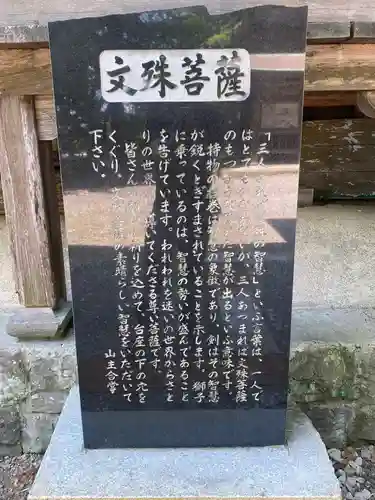 文殊菩薩
「三人 の智慧」といふ言葉は、一人で
はとても か、三人あつまれば文殊菩薩
のもつ 智慧が出るといふ意味です。
持物の 巻は 慧の象徴であり、剣はその智慧
が鋭くとぎすまされていることを示します。獅子
に乗っているのは、智慧の勢いが盛んであること
を告げています。われわれを迷いの世界からさと
りの世界 導いてくださる尊い菩薩です。
皆さん 祈りを込めて、台座の下の穴を
くぐり、文 の素晴らしい智慧をいただいて
下さい。
山主合掌